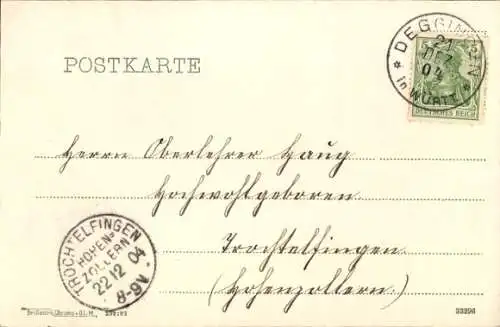 POSTKARTE
DEGGINGEN
21
DEZ
04
in WÜRTT.
5 5
DEUTSCHES REICH
Herrn Oberlehrer Haug
Hochwohlgeboren
Trochtelfingen
(Hohenzollern)
TROCHTELFINGEN
HOHEN-
ZOLLERN
22 12 04
8-9V
23296